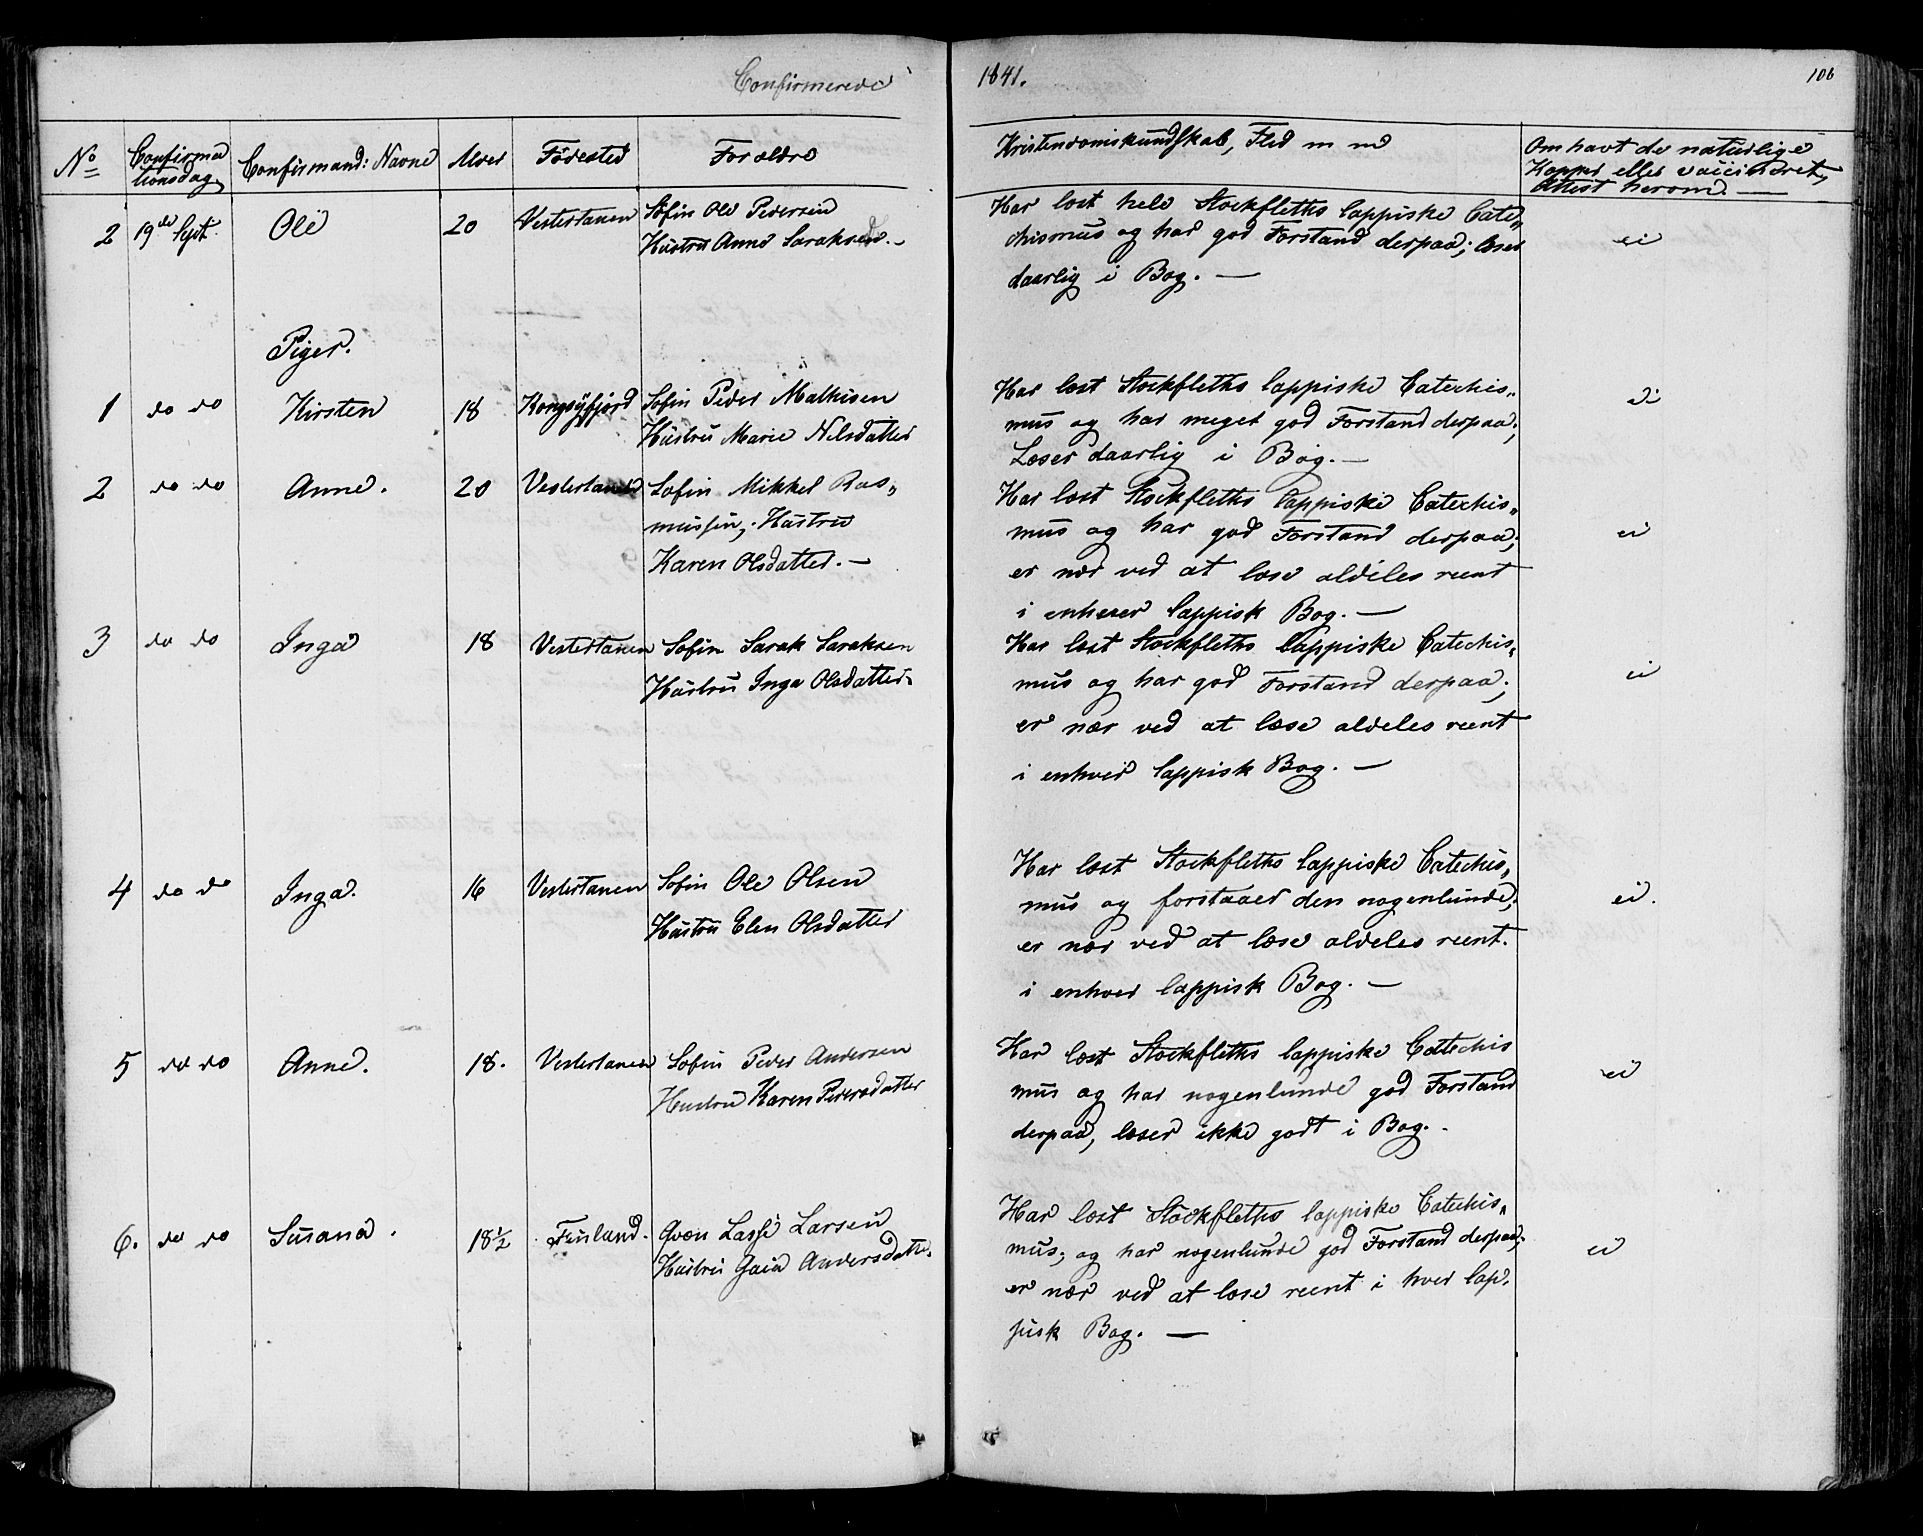 Confirmerede
1841.
106
No
Confirma
tionsdag.
Confirmand: Navne
Alder
Fødested
Forældre
Kristendomskundskab, Flid m m
Om havt de naturlige
Kopper eller vaccineret,
Attest herom. —
2 19de Sept. Ole 20 Vestertanen Søfin Ole Pedersen
Hustru Anne Saraksd. —
Har læst hele Stockfleths lappiske Cate„
chismus og har god Forstand derpaa; læser
daarlig i Bog. —
ei
Piger.
1 do do Kirsten 18 Kongsfjord Søfin Peder Mathisen
Hustru Marie Nilsdatter
Har læst Stockfleths lappiske Catechis„
mus og har meget god Forstand derpaa;
Læser daarlig i Bog. —
ei
2 do do Anne. 20 Vestertanen Søfin Mikkel Ras„
mussen, Hustru
Karen Olsdatter. —
Har læst Stockfleths lappiske Catechis„
mus og har god Forstand derpaa;
er nær ved at læse aldeles reent
i enhver lappisk Bog. —
ei
3 do do Inga 18 Vestertanen Søfin Sarak Saraksen
Hustru Inga Olsdatter
Har læst Stockfleths lappiske Catechis„
mus og har god Forstand derpaa;
er nær ved at læse aldeles reent
i enhver lappisk Bog. —
ei
4 do do Inga. 16 Vestertanen Søfin Ole Olsen
Hustru Elen Olsdatter
Har læst Stockfleths lappiske Catechis„
mus og forstaaer den nogenlunde;
er nær ved at læse aldeles reent.
i enhver lappisk Bog. —
ei.
5 do do Anne. 18. Vestertanen Søfin Peder Andersen
Hustru Karen Pedersdatter
Har læst Stockfleths lappiske Catechis
mus og har nogenlunde god Forstand
derpaa, læser ikke godt i Bog. -
ei
6. do do Susana. 18½ Finland. Qvæn Lasse Larsen
Hustru Gaia Andersdatter.
Har læst Stockfleths lappiske Catechis„
mus; og har nogenlunde god Forstand derpaa;
er nær ved at læse reent i hver lap„
pisk Bog. —
ei